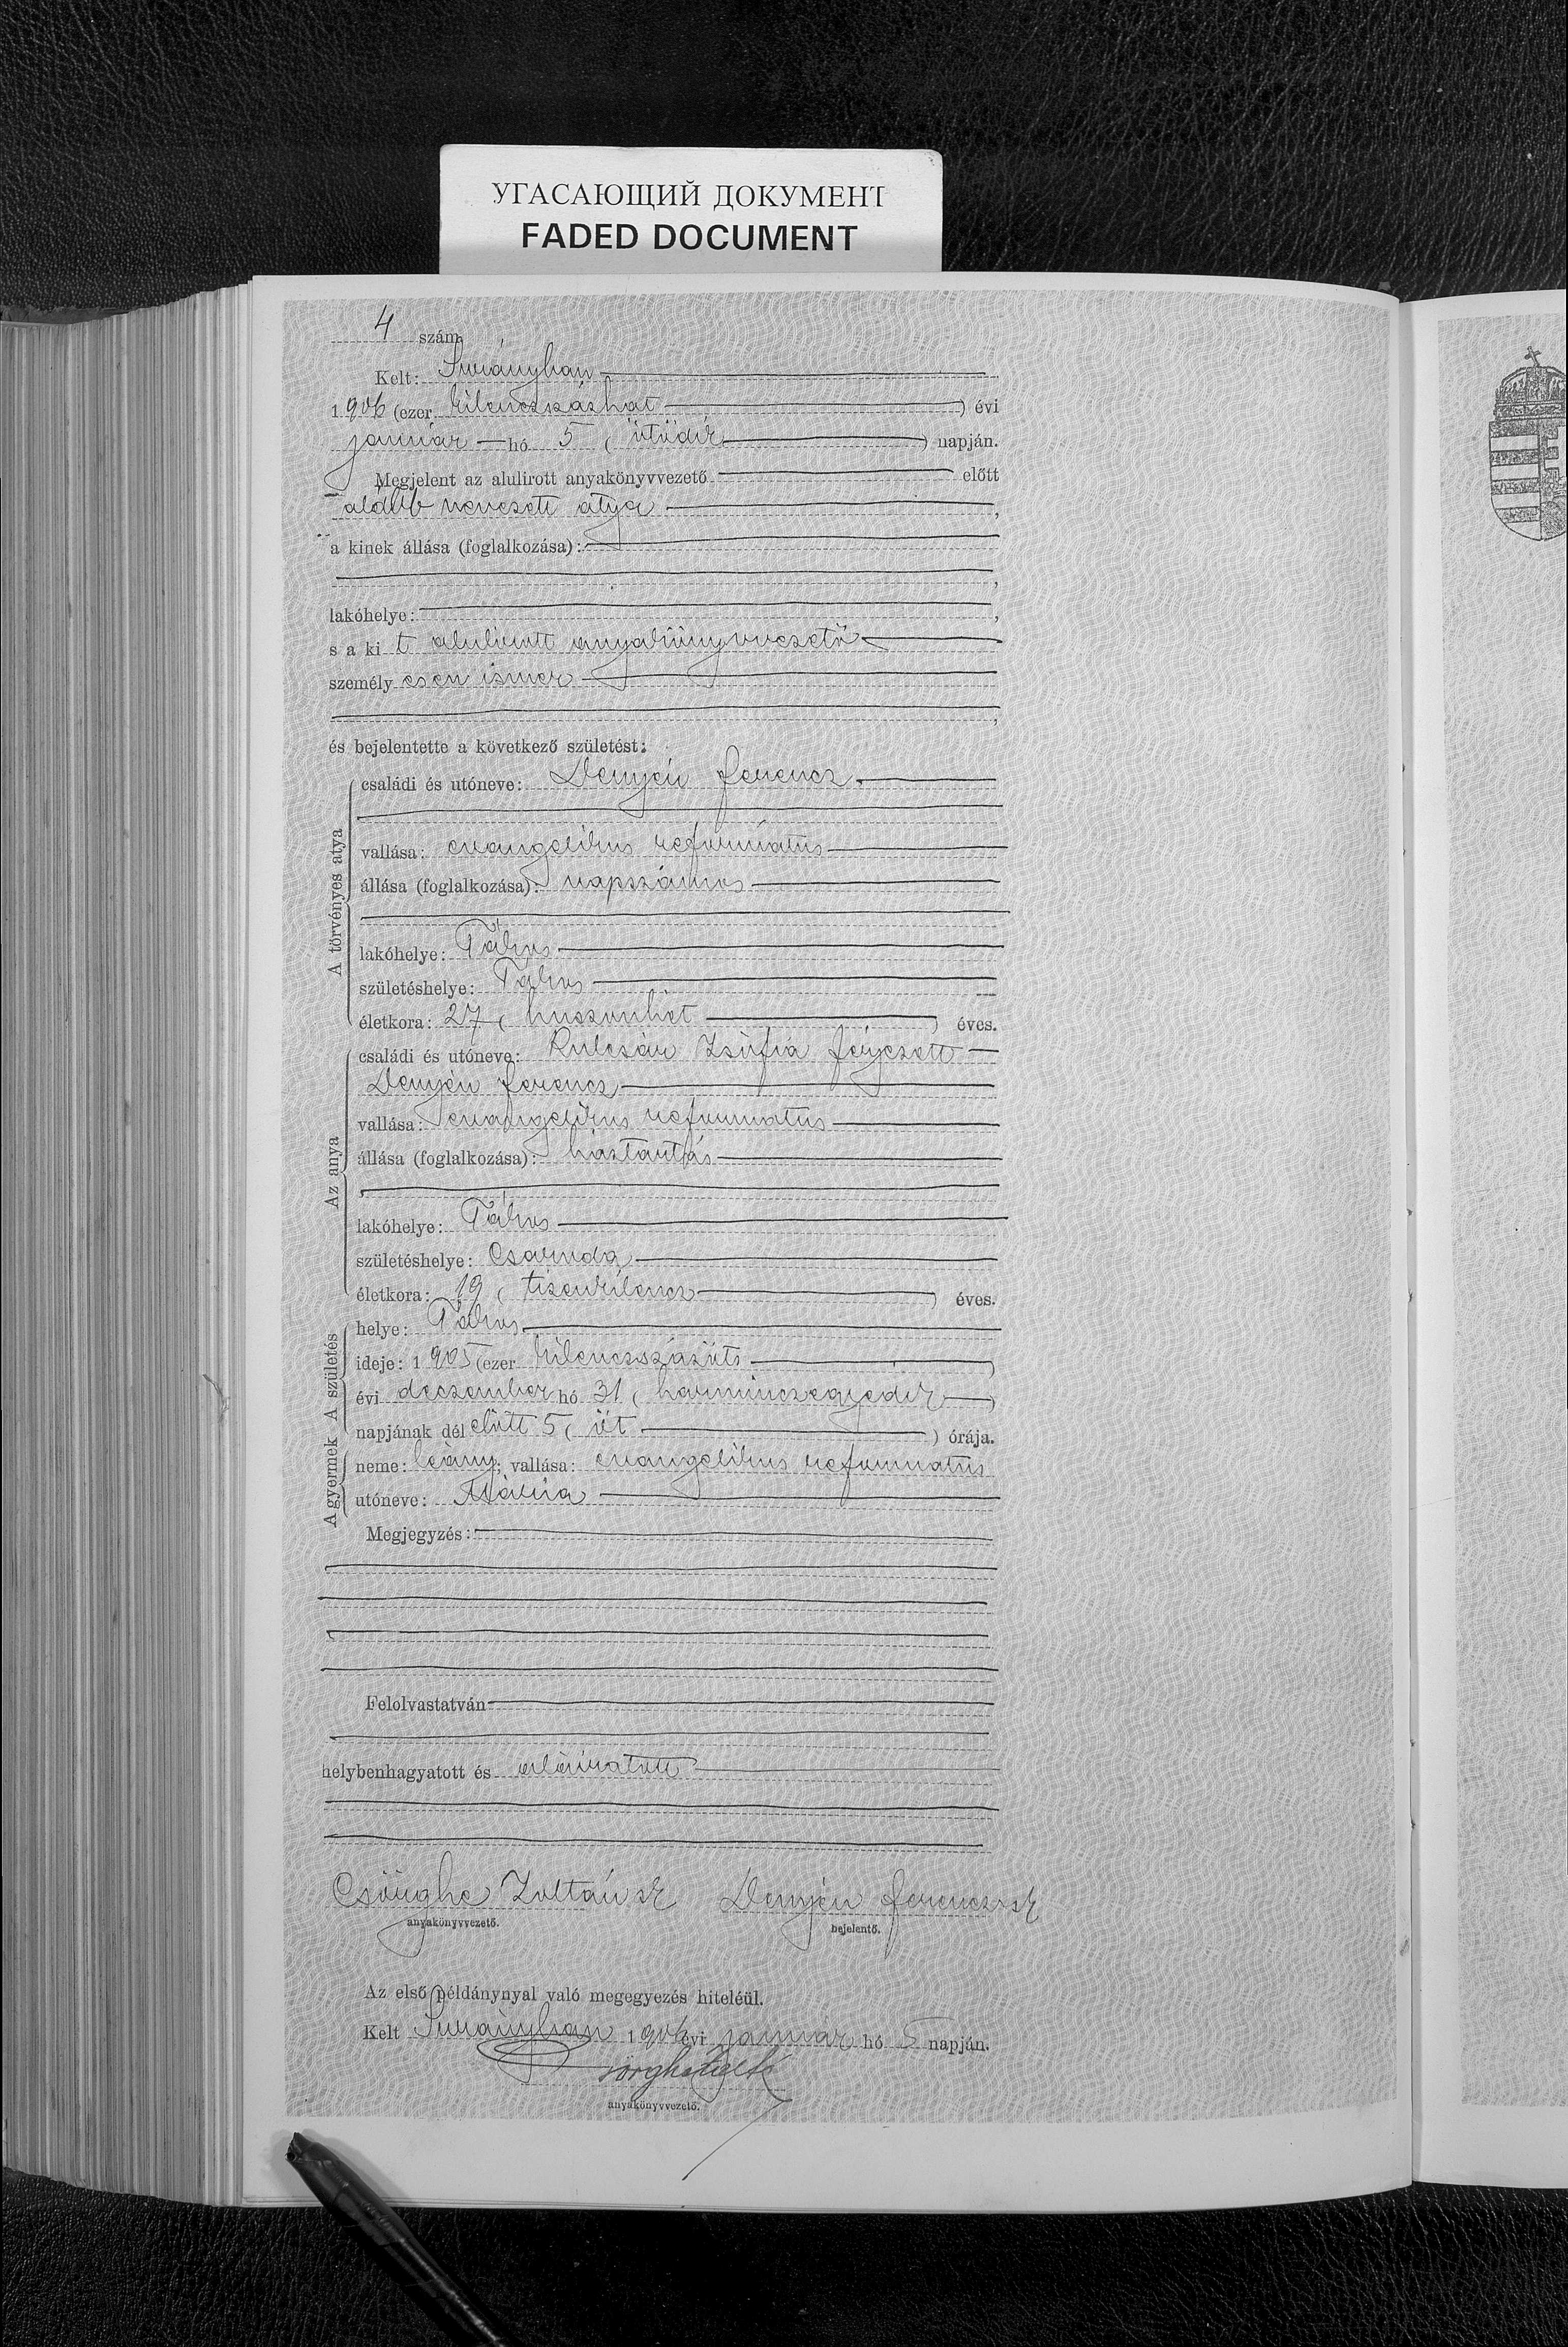 УГАСАЮЩИЙ ДОКУМЕНТ
FADED DOCUMENT
4 szám
Kelt: Surányban
1906 (ezer kilenczszázhat) évi
január hó 5 (ötödik) napján.
Megjelent az alulirott anyakönyvvezető előtt
alább nevezett atya,
a kinek állása (foglalkozása):
,
lakóhelye: ,
s a kit alulirott anyakönyvvezető
személyesen ismer
,
és bejelentette a következő születést:
A törvényes atya
családi és utóneve: Demjén Ferencz
vallása: evangelikus református
állása (foglalkozása): napszámos
lakóhelye: Tákos
születéshelye: Tákos
életkora: 27 (huszonhét) éves.
Az anya
családi és utóneve: Kulcsár Zsófia férjezett
Demjén Ferencz
vallása: evangelikus református
állása (foglalkozása): háztartás
lakóhelye: Tákos
születéshelye: Csaroda
életkora: 19 (tizenkilencz) éves.
A születés
helye: Tákos
ideje: 1905 (ezer kilenczszázöt)
évi deczember hó 31 (harminczegyedik)
napjának délelőtt 5 (öt) órája.
A gyermek
neme: leány; vallása: evangelikus református
utóneve: Mária
Megjegyzés:
Felolvastatván
helybenhagyatott és aláiratott
Csörghe Zoltán sk Demjén Ferencz sk
anyakönyvvezető. bejelentő.
Az első példánynyal való megegyezés hiteléül.
Kelt Surányban 1906 évi január hó 5 napján.
anyakönyvvezető.